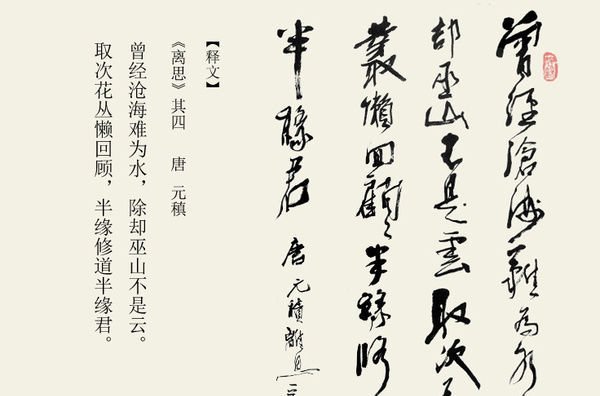 曾經滄海難為水
却巫山不是雲取次
叢懶回顧半緣修
半緣君 唐元稹離思
【释文】
《离思》其四 唐 元稹
曾经沧海难为水，除却巫山不是云。
取次花丛懒回顾，半缘修道半缘君。